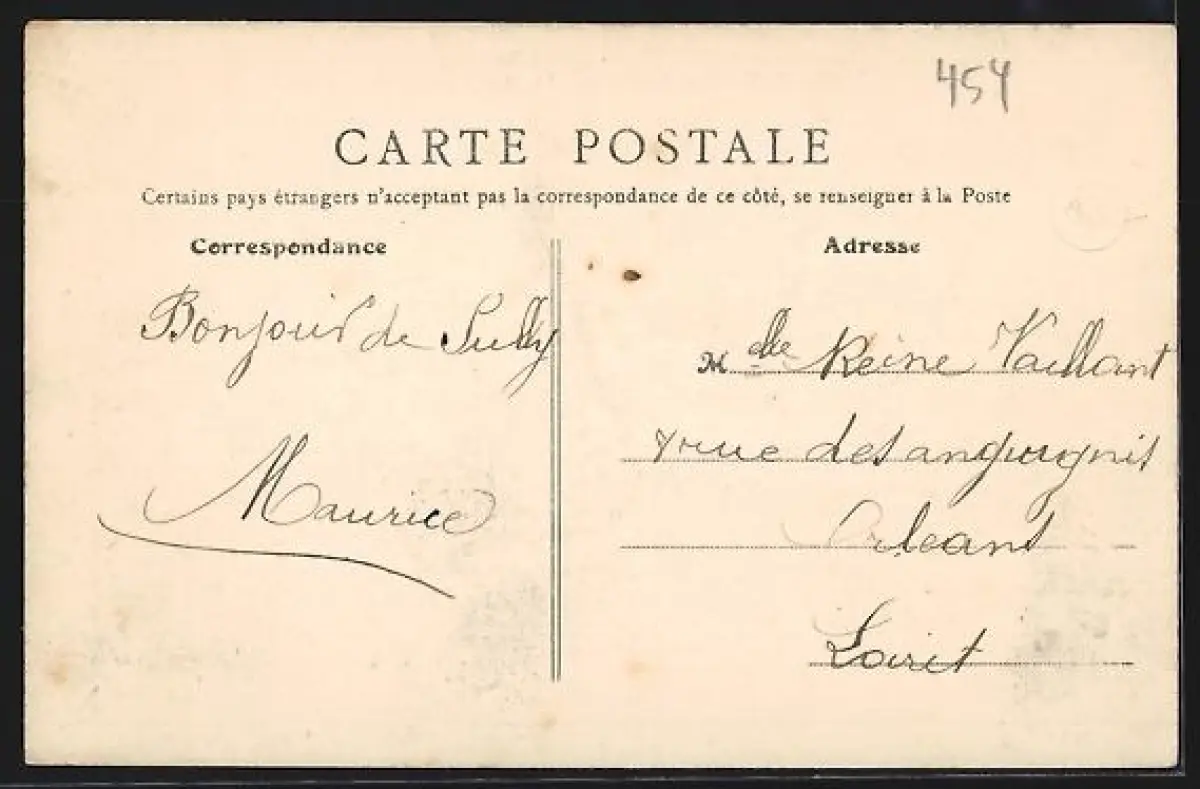 454
CARTE POSTALE
Certains pays étrangers n'acceptent pas la correspondance de ce côté, se renseigner à la Poste
Correspondance
Bonjour de Sully
Maurice
Adresse
Melle Reine Vaillant
rue des anguignis
Orleans
Loiret